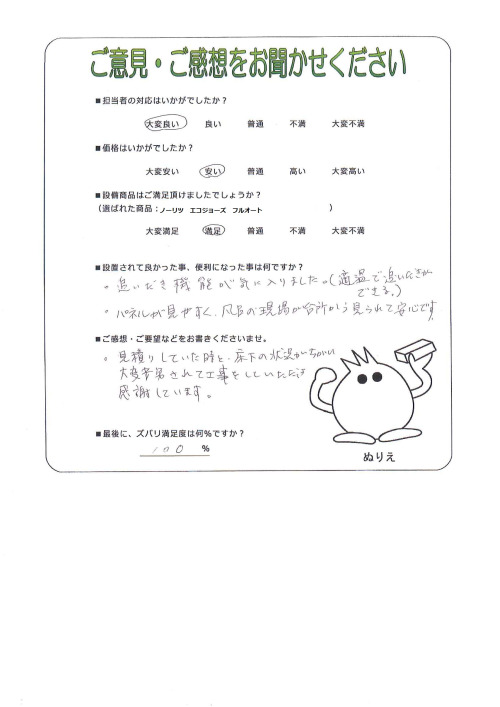 ご意見・ご感想をお聞かせください
■担当者の対応はいかがでしたか？
大変良い 良い 普通 不満 大変不満
■価格はいかがでしたか？
大変安い 安い 普通 高い 大変高い
■設備商品はご満足頂けましたでしょうか？
（選ばれた商品：ノーリツ エコジョーズ フルオート ）
大変満足 満足 普通 不満 大変不満
■設置されて良かった事、便利になった事は何ですか？
。追いだき機能が気に入りました。(適温で追いだきが
できる。)
。パネルが見やすく、風呂の現場が台所から見られて安心です。
■ご感想・ご要望などをお書きくださいませ。
。見積りしていた時と、床下の状況がちがい
大変苦労されて工事をしていただき
感謝しています。
■最後に、ズバリ満足度は何％ですか？
100 %
ぬりえ